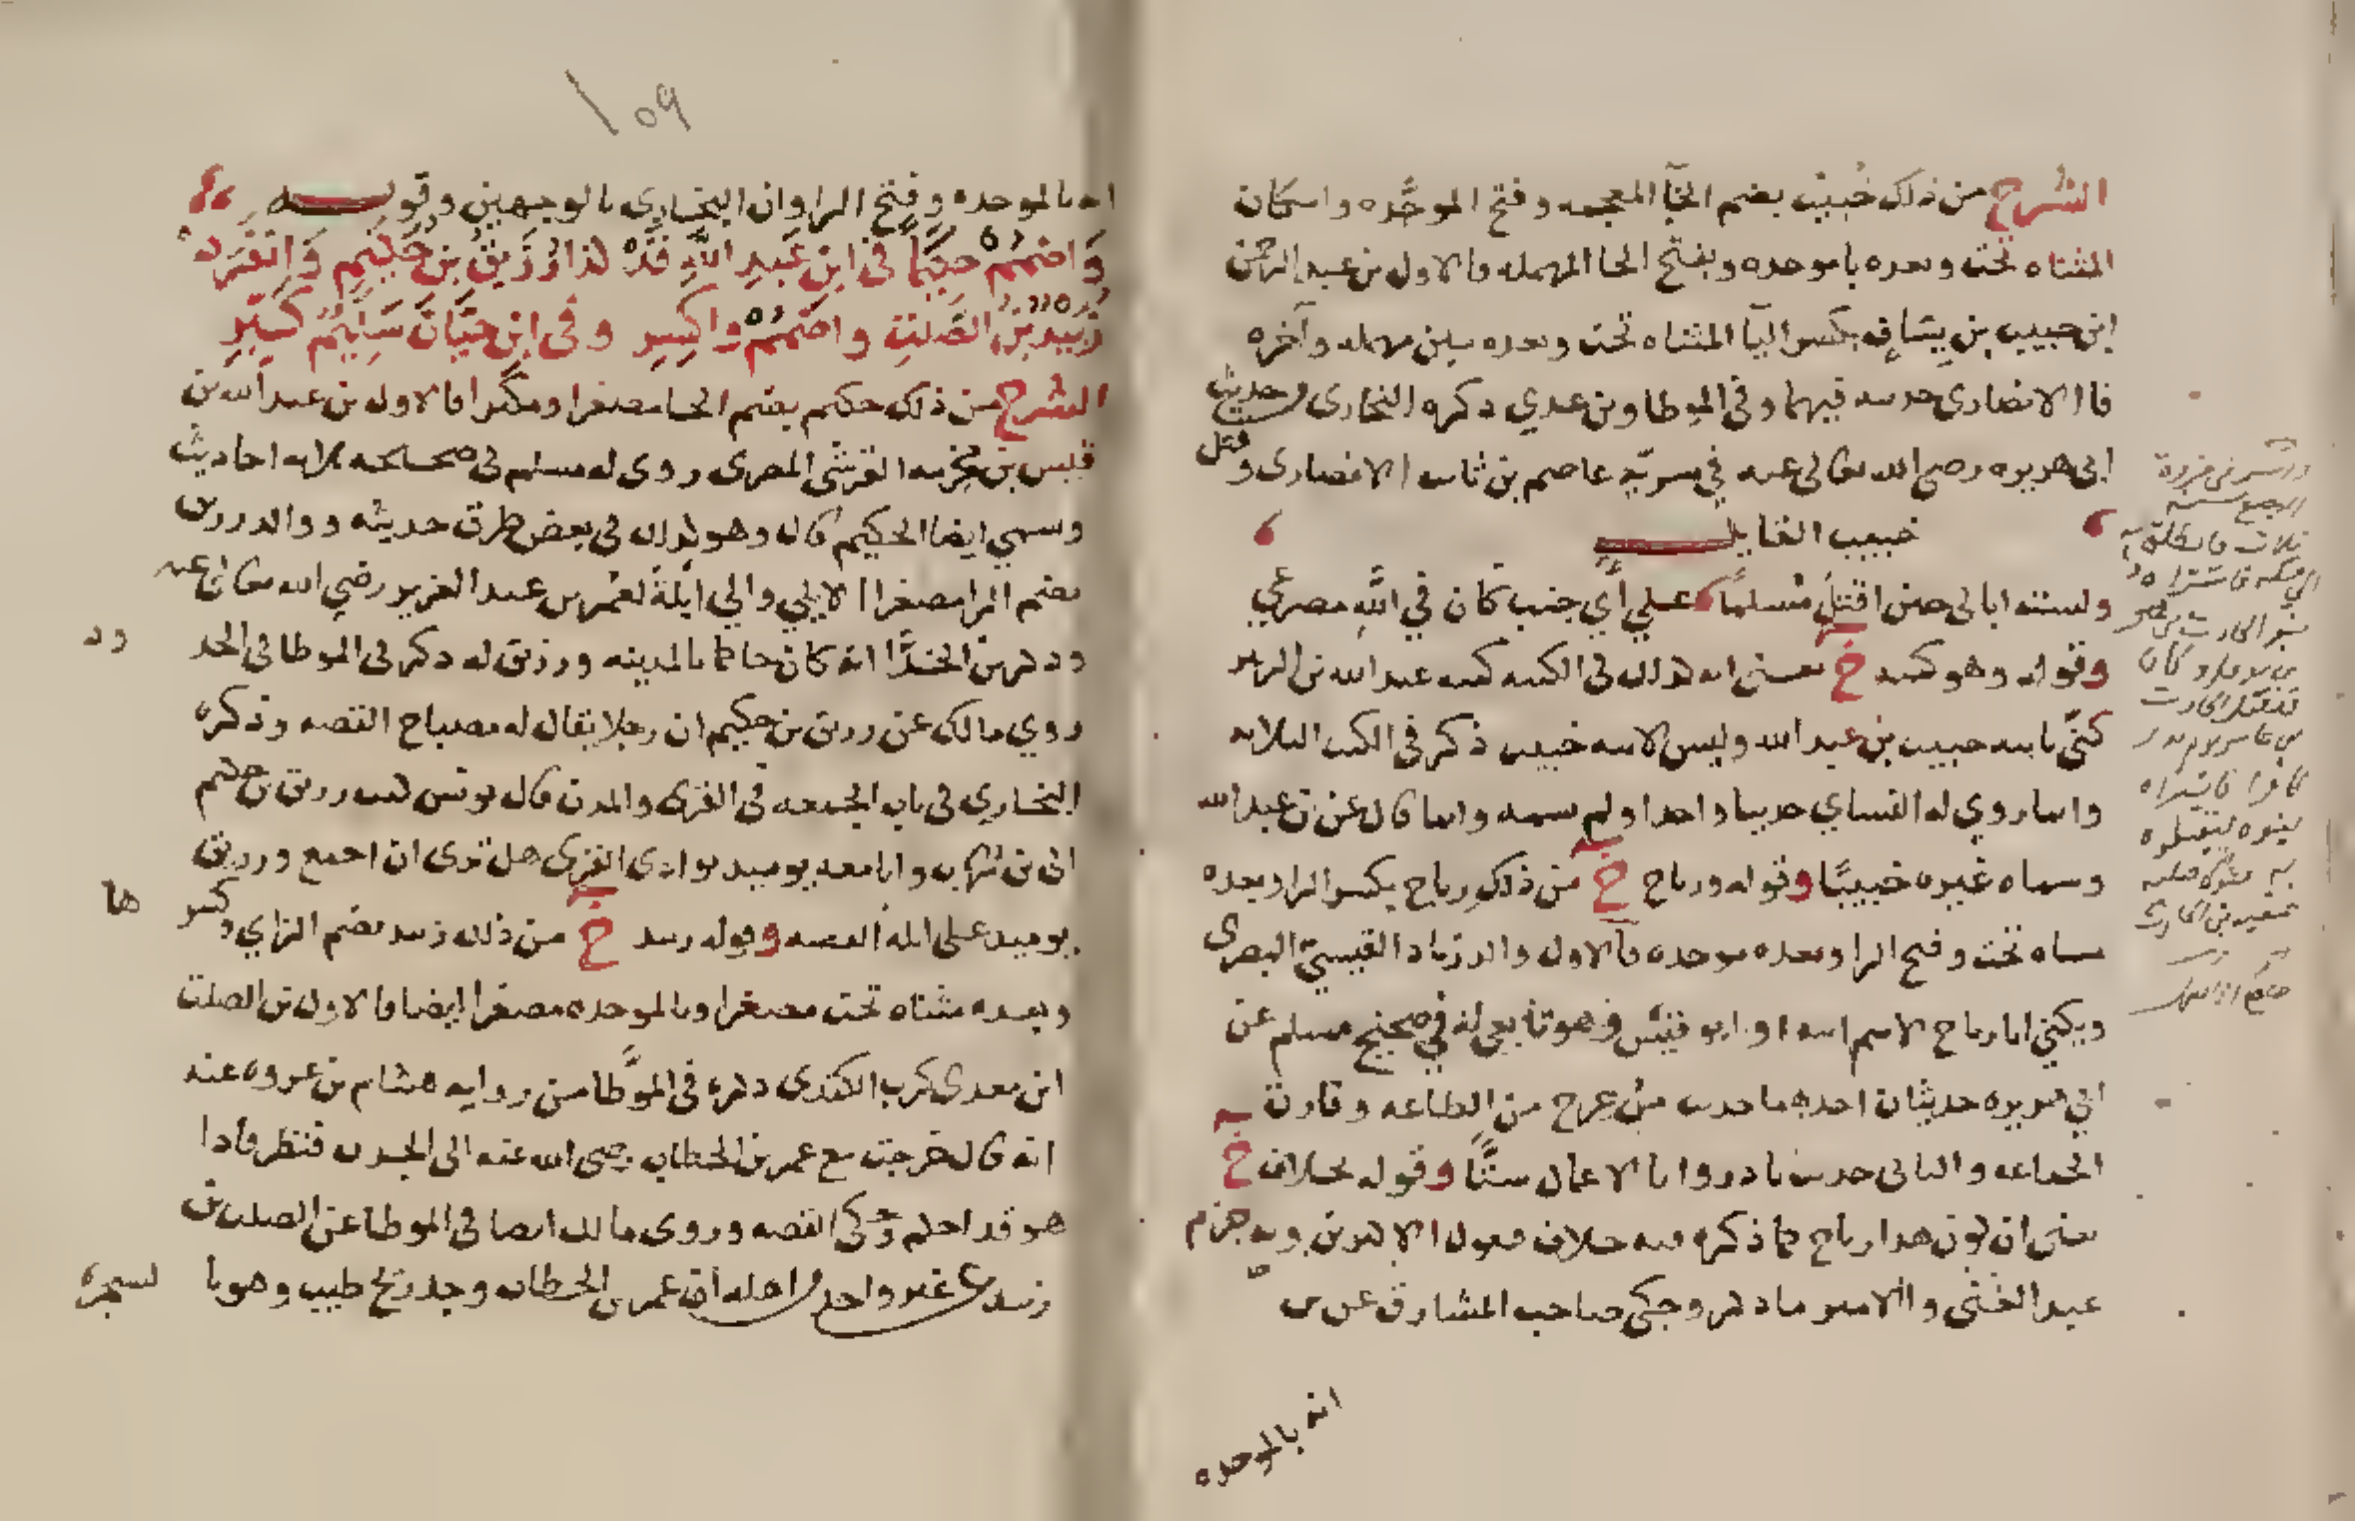 الشرح من ذلك خُبيب بضم الخآ المعجمه وفتح الموحَّده واسكان
المثناه تحت وبعده با موحده وبفتح الحا المهمله فالاول بن عبد الرحمن
ابن خبيب بن يِسَاف بكسر اليآ المثناه تحت وبعده سين مهمله وآخره
فا الانصارى حديثه فيهما وفي الموطا وبن عدي ذكره البخارى في حديث
ابى هريره رضى الله تعالى عنه في سريّه عاصم بن ثابت الانصارى وقتل
خبيب القايل
ولست ابالى حين اقتل مُسلمًا علي أيِّ جنب كان في اللّه مصرعي
وقوله وهو كنيه خ يعنى انه كذلك فى الكنيه كنيه عبد الله بن الزبير
كنّي بابنه خبيب بن عبد الله وليس لابنه خبيب ذكر في الكتب الثلاثه
وانما روي له النساي حديثا واحدا ولم يسمه وانما قال عن بن عبد الله
وسماه غيره خبيبًا وقوله ورياح خ من ذلك رياح بكسر الرا وبعده
مثناه تحت وفتح الرا وبعده موحده فالاول والد زياد القيسيّ البصرى
ويكني ابا رياح الاسم ابيه او ابو قيس وهو تابعي له في صحيح مسلم عن
ابي هريره حديثان احدهما حديث من خرج من الطاعه وفارق
الجماعه والثانى حديث بادروا بالاعمال ستًّا وقوله بخلاف خ
يعنى ان كون هذا رياح كما ذكره فيه خلاف فقول الاكثرين وبه جزم
عبد الغنى والامير ما ذكر وحكى صاحب المشارق عن
انه بالموحده
١٥٩
انه بالموحده وفتح الرا وان البخارى بالوجهين وقوله
وَاضمُم حكيمًا في ابن عَبدِ اللّهِ قَدْ كذا رُزَيقُ بن حَكيمٍ وَانفَرَد
زُيَيد بنُ الصَّلتِ واضمُم واكسِرِ وفى ابن حَيَّانَ سَلِيمُ كَبِّرِ
الشرح من ذلك حكيم بضم الحا مصغرا ومكبرا فالاول بن عبد الله بن
قيس بن مخرمه القرشى المصرى روى له مسلم في صحيحه ثلاثه احاديث
وسمي ايضا الحكيم قاله وهو كذلك في بعض طرق حديثه ووالد رزيق
بضم الرا مصغرا الايلي والي ايلةَ لعُمر بن عبد العزيز رضي الله تعالى عنه
وذكر بن الحذّآ انه كان حاكما بالمدينه ورزيق له ذكر في الموطا في الحدود
روي مالك عن رزيق بن حكيم ان رجلا يقال له مصباح القصه وذكره
البخاري في باب الجمعه في القرى والمدن قال يونس كتب رزيق بن حكيم
الى بن شهاب وانا معه يوميد بوادى القرى هل ترى ان اجمع ورزيق
يوميد على ايله القصه وقوله زييد خ من ذلك زييد بضم الزاي وكسرها
وبعده مثناه تحت مصغرا وبالموحده مصغرا ايضا فالاول بن الصلت
ابن معدى كرب الكندى ذكره فى الموَّطا من روايه هشام بن عروه عنه
انه قال خرجت مع عمر بن الخطاب رضى الله عنه الى الجرف فنظر فاذا
هو قد احتلم وحكى القصه وروى مالك ايضا في الموطا عن الصلت بن
زييد عن غير واحد من اهله ان عمر بن الخطاب وجد ريح طيب وهو بالشجره